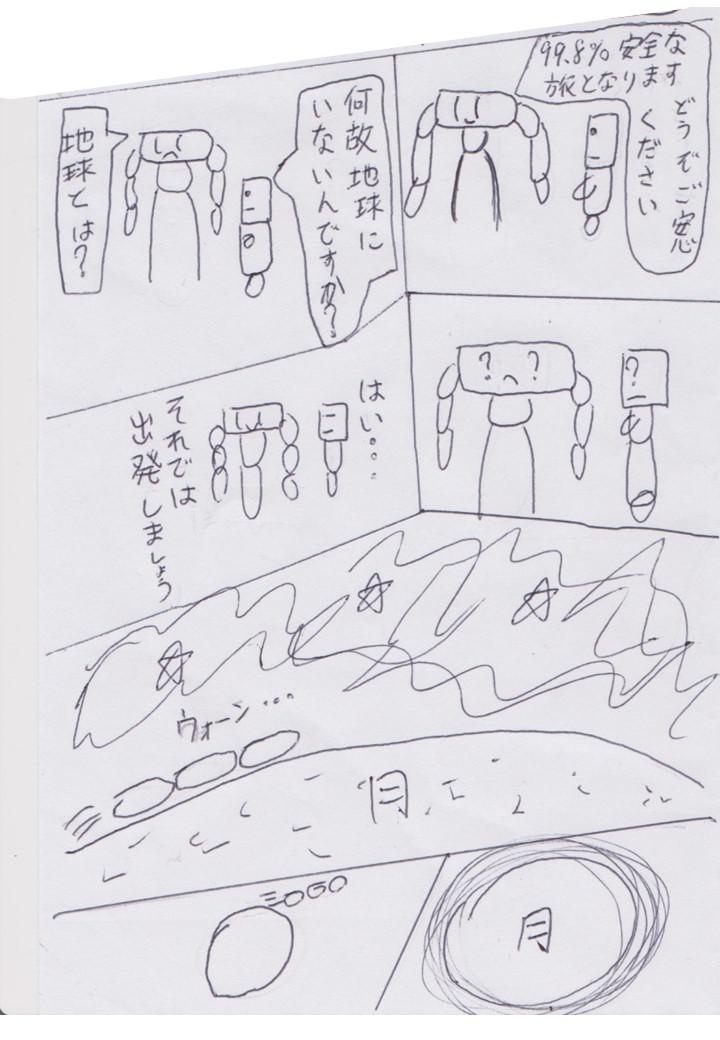 99.8% 安全な
旅となります
どうぞご安心
ください
何故地球に
いないんですか?
地球とは?
? ?
?
はい。。。
それでは
出発しましょう
ウォーン...
月
月